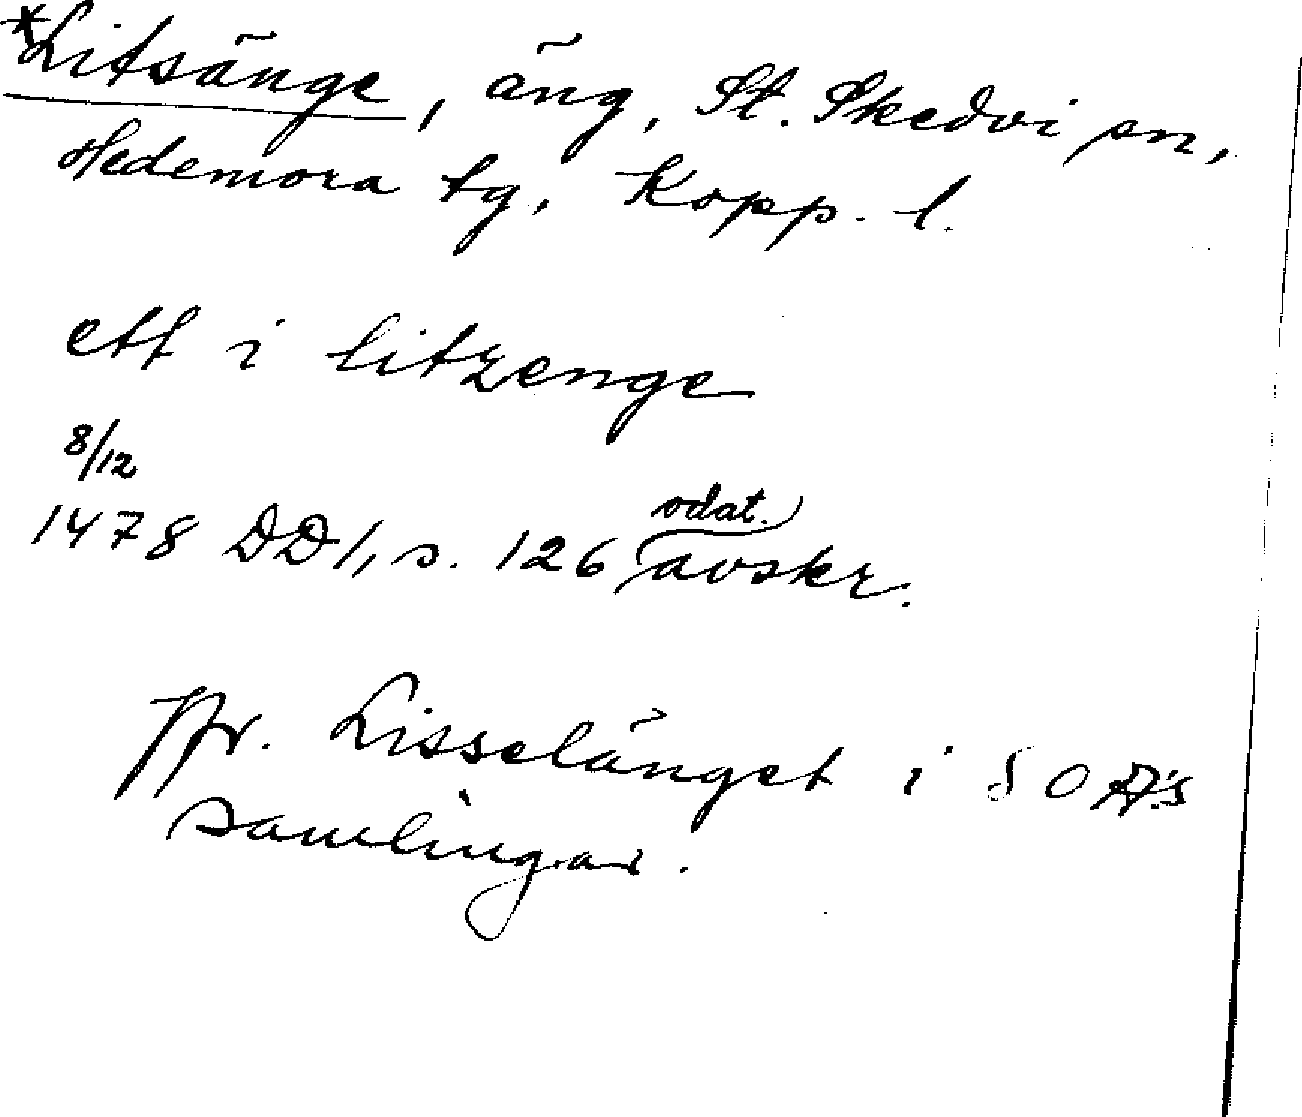 *Litsänge, äng, St. Skedvi sn,
Hedemora tg, Kopp. l.
ett i litzenge
8/12
1478 DD 1, s. 126 odat. avskr.
Jfr. Lisselänget i SOA:s
samlingar.